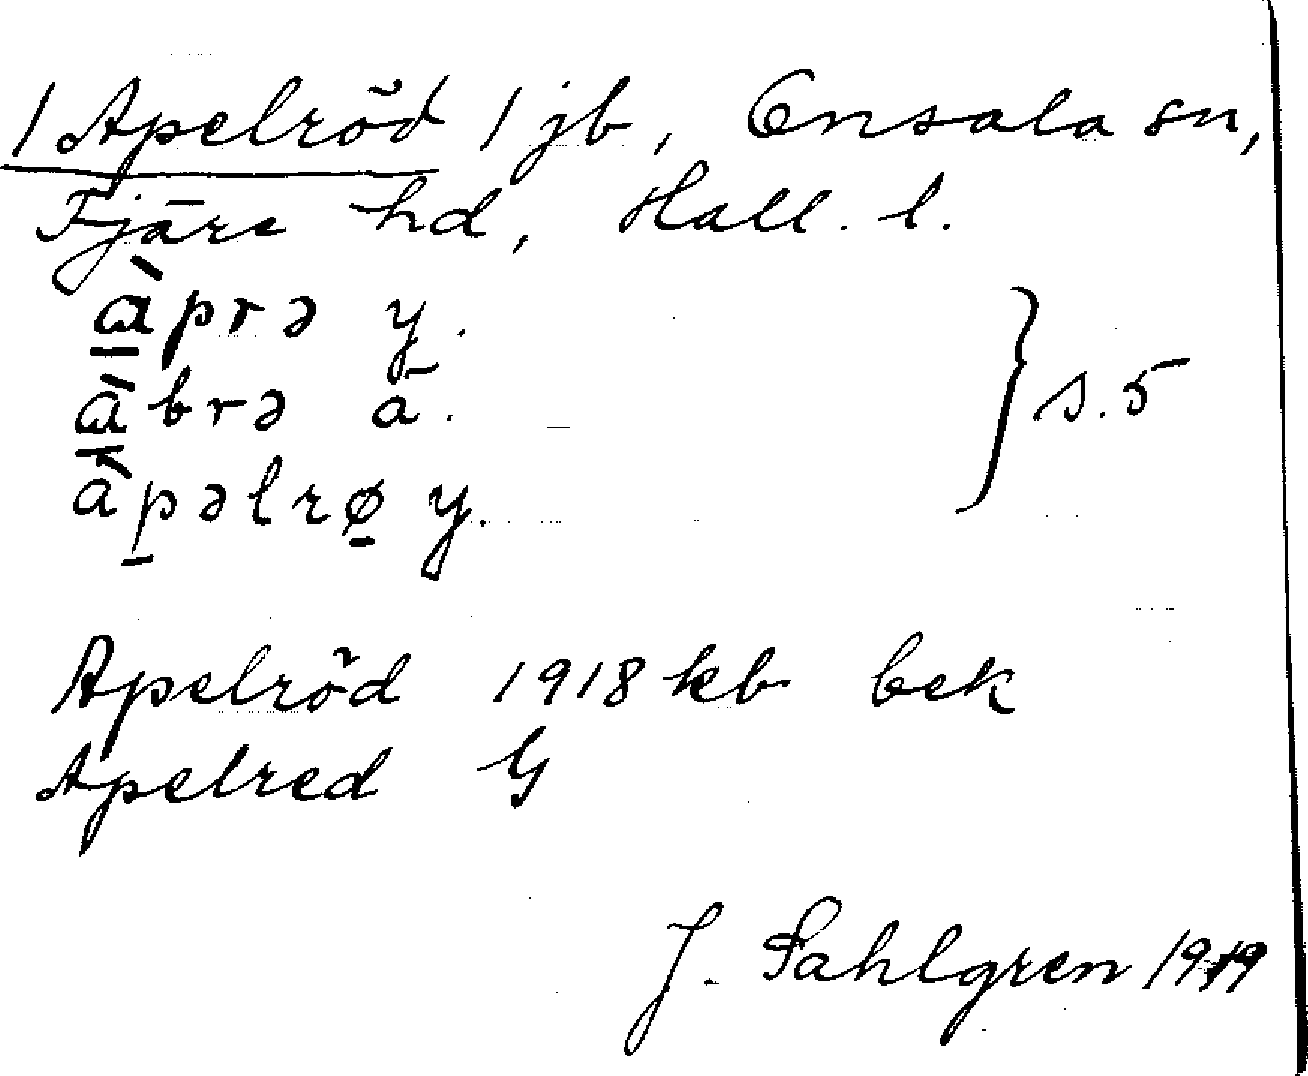 1 Apelröd 1 jb, Onsala sn,
Fjäre hd, Hall. l.
à̱prə y.
à̱brə ä. } s. 5
àp̱əlrø̱ y.
Apelröd 1918 kb bek
Apelred G
J. Sahlgren 1919